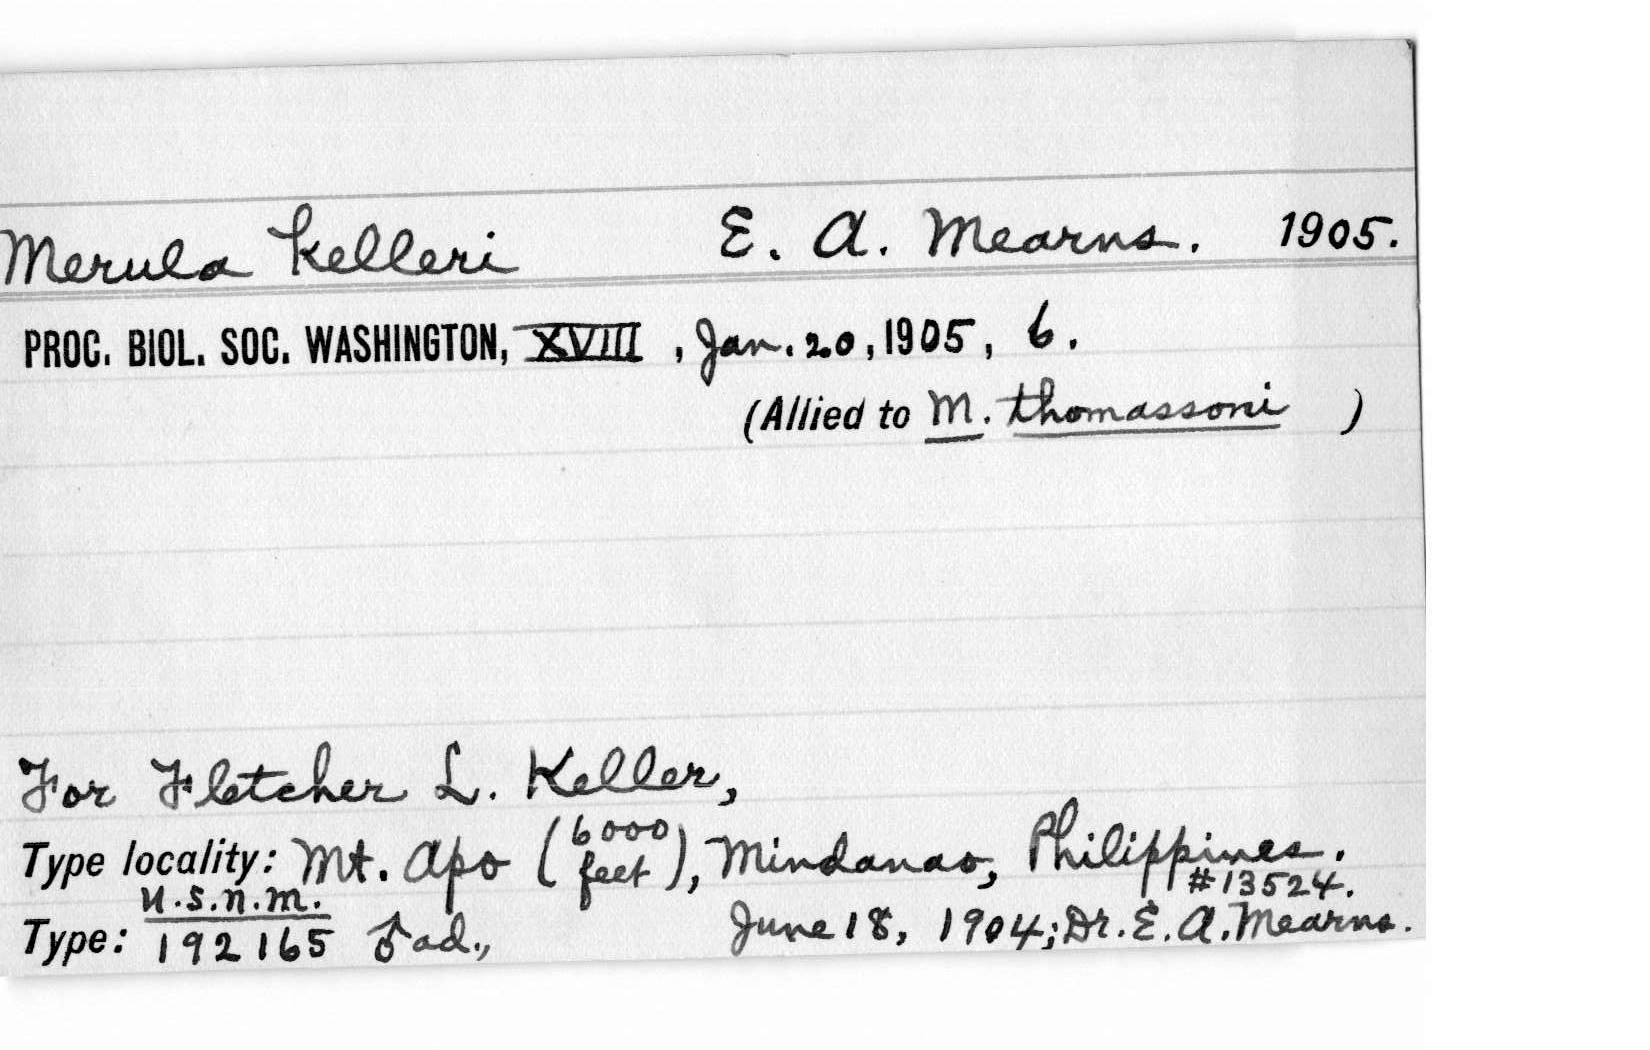 Merula kelleri E. A. Mearns. 1905.
PROC. BIOL. SOC. WASHINGTON, XVIII, Jan. 20, 1905, 6.
(Allied to M. thomassoni )
For Fletcher L. Keller,
Type locality: Mt. Apo (6000 feet), Mindanao, Philippines.
#13524.
Type: U.S.N.M. 192165 ♂ ad., June 18, 1904; Dr. E. A. Mearns.